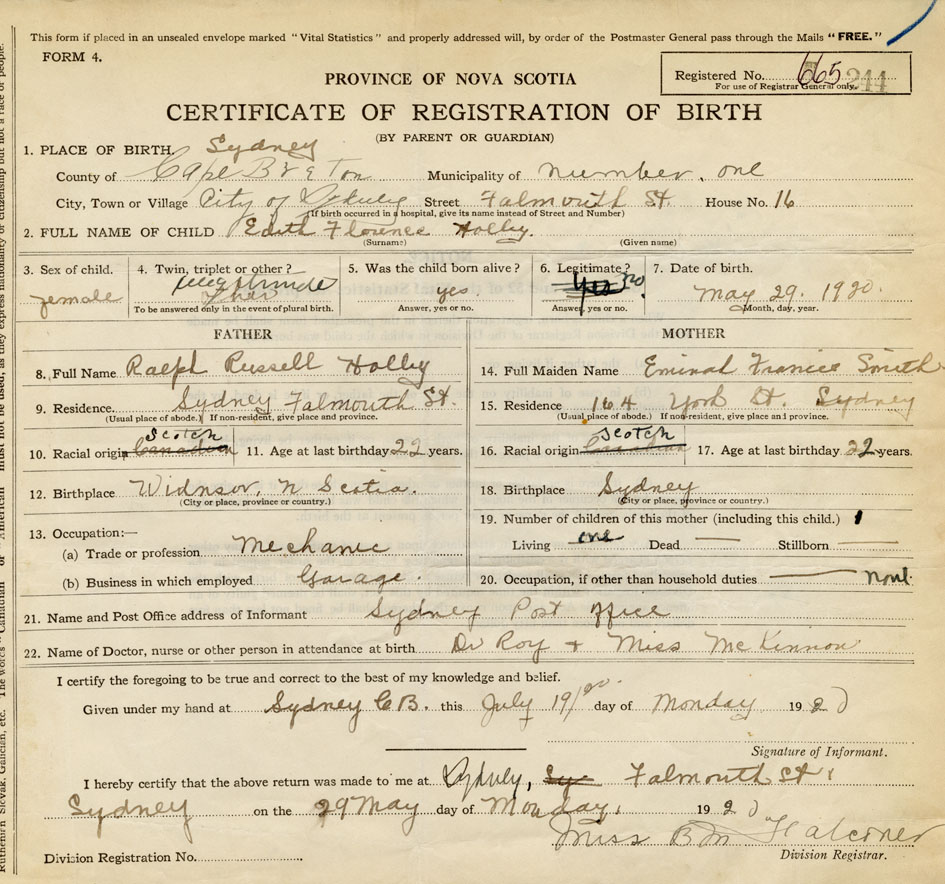 This form if placed in an unsealed envelope marked "Vital Statistics" and properly addressed will, by order of the Postmaster General pass through the Mails "FREE."
FORM 4.
PROVINCE OF NOVA SCOTIA
Registered No. 665 244
For use of Registrar General only.
CERTIFICATE OF REGISTRATION OF BIRTH
(BY PARENT OR GUARDIAN)
1. PLACE OF BIRTH. Sydney
County of Cape Breton Municipality of number, one
City, Town or Village City of Sydney Street Falmouth St House No. 16
(If birth occurred in a hospital, give its name instead of Street and Number)
2. FULL NAME OF CHILD Edith Florence Holley.
(Surname) (Given name)
3. Sex of child. 4. Twin, triplet or other? 5. Was the child born alive? 6. Legitimate? 7. Date of birth.
female yes. Yes no. May 29. 1920.
To be answered only in the event of plural birth. Answer, yes or no. Answer, yes or no. Month, day, year.
FATHER MOTHER
8. Full Name Ralph Russell Holley 14. Full Maiden Name Francis Smith
9. Residence Sydney Falmouth St. 15. Residence 164 York St. Sydney
(Usual place of abode.) If non-resident, give place and province. (Usual place of abode.) If non-resident, give place and province.
10. Racial origin Canadian Scotch 11. Age at last birthday 22 years. 16. Racial origin Canadian Scotch 17. Age at last birthday 22 years.
12. Birthplace Widnsor, N Scotia. 18. Birthplace Sydney
(City or place, province or country.) (City or place, province or country.)
13. Occupation:— 19. Number of children of this mother (including this child.) 1
(a) Trade or profession Mechanic Living one Dead — Stillborn —
(b) Business in which employed Garage. 20. Occupation, if other than household duties — none
21. Name and Post Office address of Informant Sydney Post office
22. Name of Doctor, nurse or other person in attendance at birth Dr Roy + Miss McKinnon
I certify the foregoing to be true and correct to the best of my knowledge and belief.
Given under my hand at Sydney C B. this July 19/20. day of Monday 1920
Signature of Informant.
I hereby certify that the above return was made to me at Sydney, Sy Falmouth St
Sydney on the 29 May day of Monday, 1920
Miss B M Falconer
Division Registration No. Division Registrar.